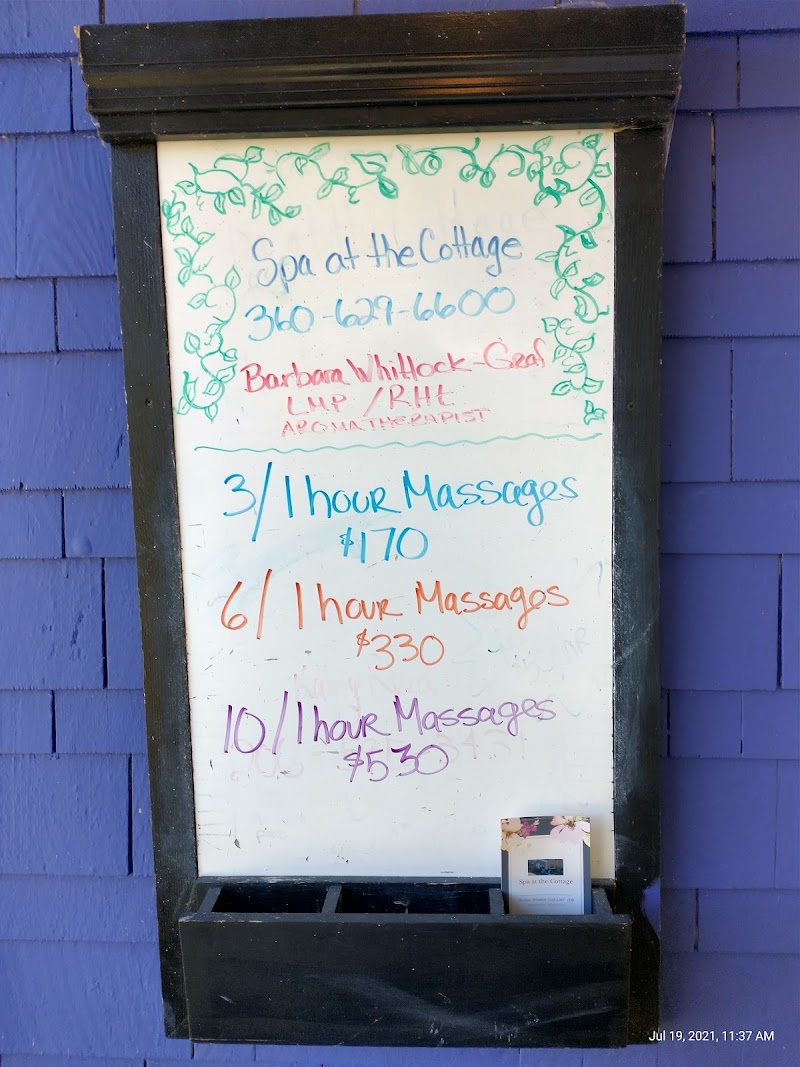 Spa at the Cottage
360-629-6600
Barbara Whitlock-Graf
LMP /RHt
AROMATHERAPIST
3/1 hour Massages
$170
6/1 hour Massages
$330
10/1 hour Massages
$530
Spa at the Cottage
Jul 19, 2021, 11:37 AM